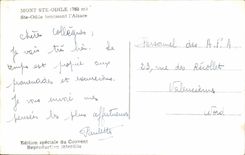 MONT STE-ODILE (763 m)
Ste-Odile bénissant l'Alsace
chers Collègues,
Je vais très bien. Le
temps est propice aux
promenades et excursions.
Je vous envoie mes
pensées les plus affectueuses
Paulette
Personnel des A.F.A
22, rue des Récollets
Valenciennes
Nord
Edition spéciale du Couvent
Reproduction interdite